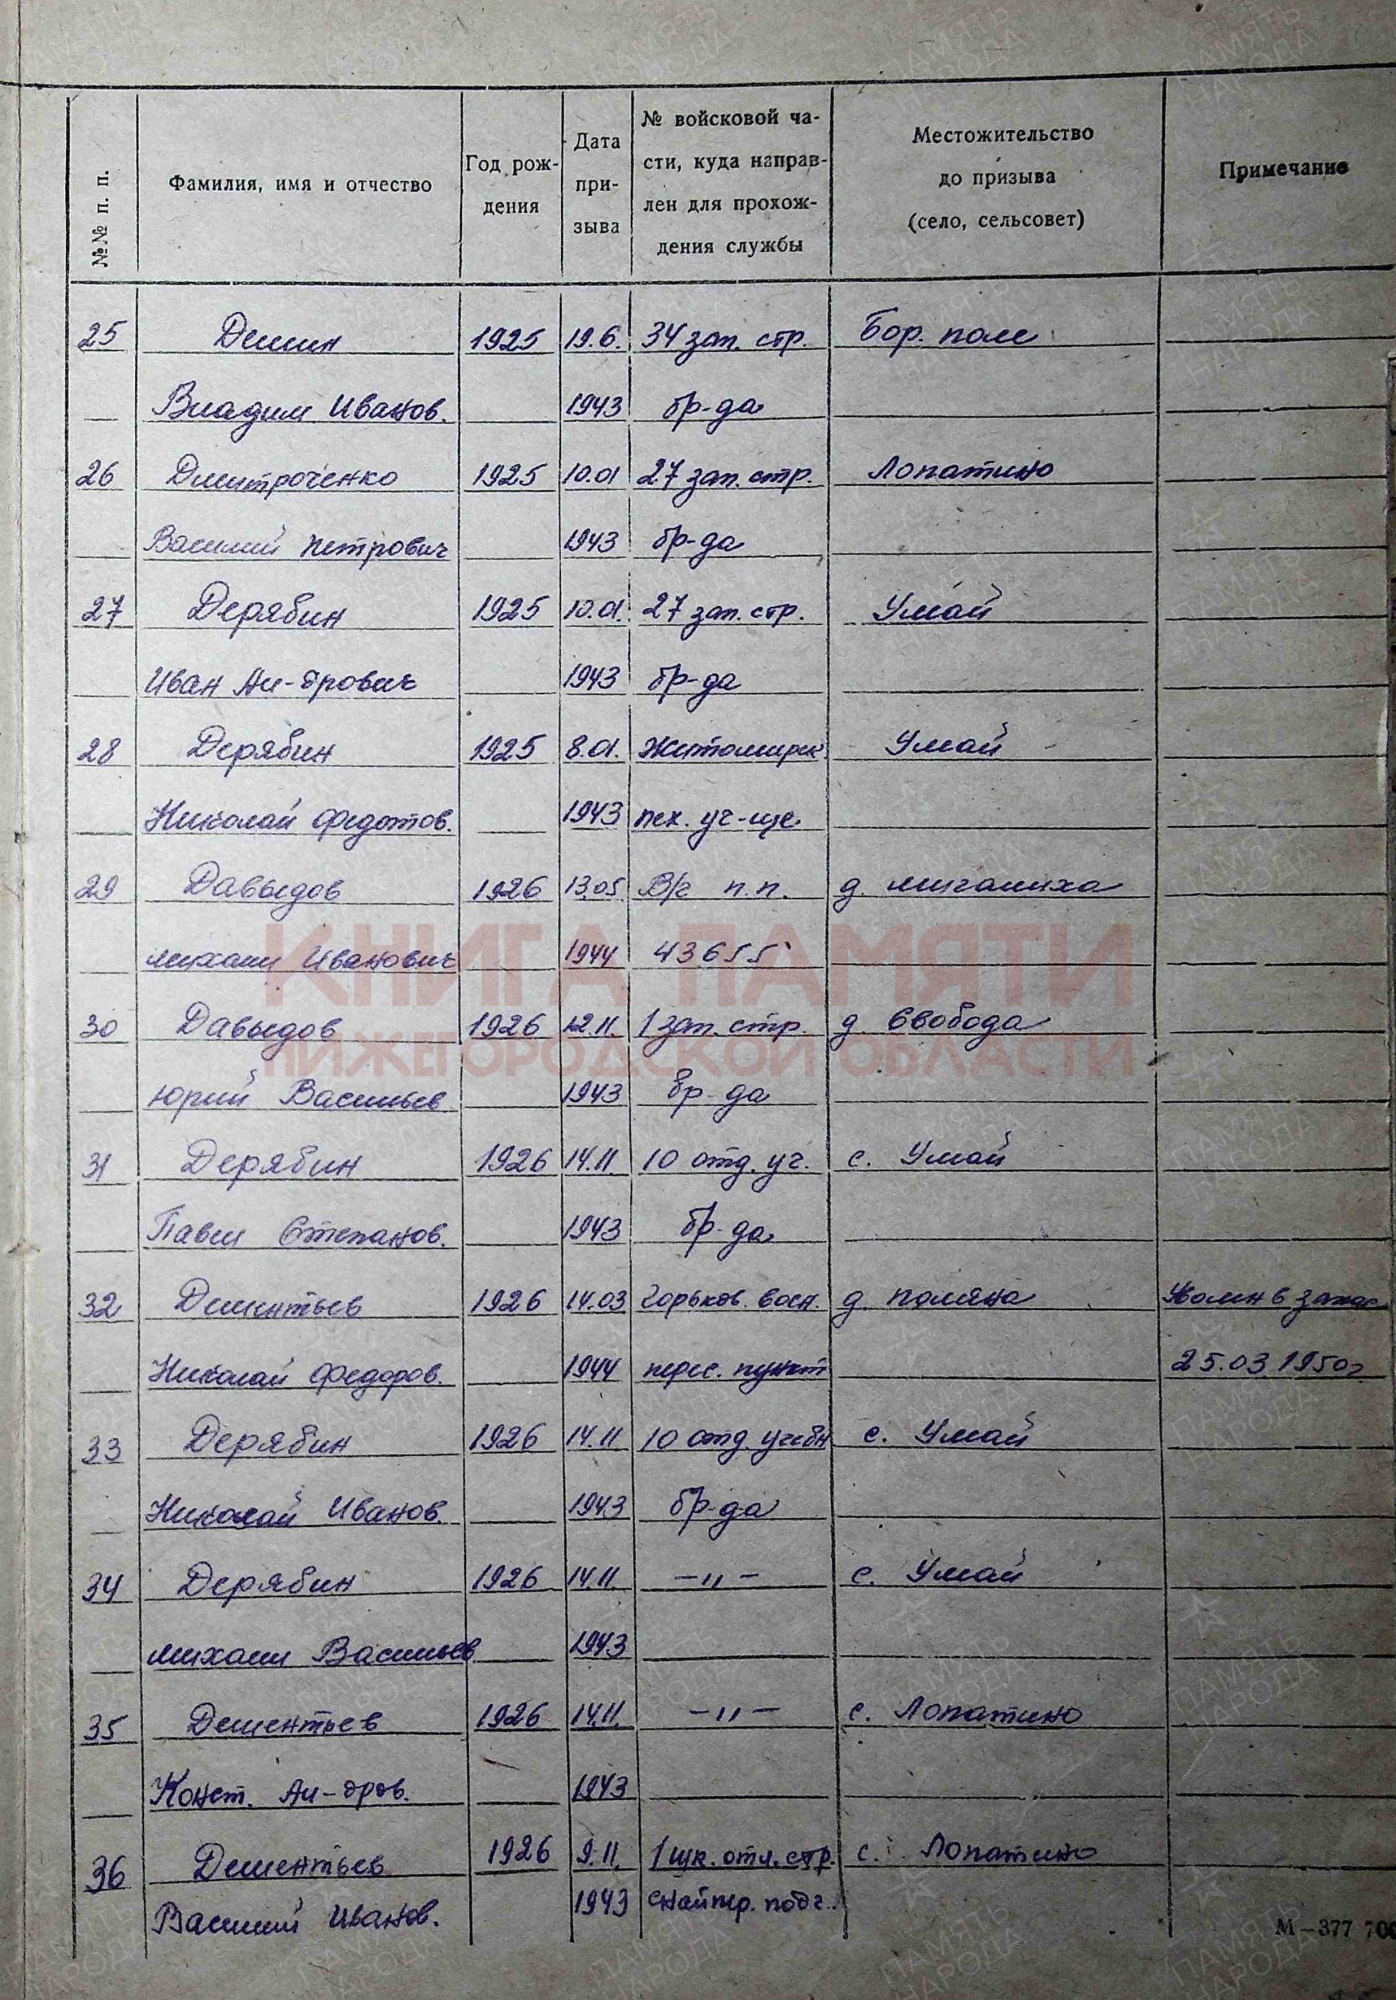 №№ п. п.
Фамилия, имя и отчество
Год рож-
дения
Дата
при-
зыва
№ войсковой ча-
сти, куда направ-
лен для прохож-
дения службы
Местожительство
до призыва
(село, сельсовет)
Примечание
25 Демин 1925 19.6. 34 зап. стр. Бор. поле
Владим Иванов. 1943 бр-да
26 Дмитроченко 1925 10.01 27 зап. стр. Лопатино
Василий Петрович 1943 бр-да
27 Дерябин 1925 10.01. 27 зап. стр. Умай
Иван Ал-дрович 1943 бр-да
28 Дерябин 1925 8.01. Житомирск. Умай
Николай Федотов. 1943 пех. уч-ще
29 Давыдов 1926 13.05. В/ч п.п. д. Мигалиха
Михаил Иванович 1944 43655
КНИГА ПАМЯТИ
30 Давыдов 1926 12.11. 1 зап. стр. д. Свобода
НИЖЕГОРОДСКОЙ ОБЛАСТИ
Юрий Васильев 1943 бр-да
31 Дерябин 1926 14.11 10 отд. уч. с. Умай
Павел Степанов. 1943 бр-да
32 Дементьев 1926 14.03 Горьков. воен. д. Поляна Уволен в запас
Николай Федоров. 1944 перес. пункт 25.03.1950г.
33 Дерябин 1926 14.11 10 отд. учебн с. Умай
Николай Иванов. 1943 бр-да
34 Дерябин 1926 14.11. -"- с. Умай
Михаил Васильев 1943
35 Дементьев 1926 14.11. -"- с. Лопатино
Конст. Ал-дров. 1943
36 Дементьев 1926 9.11. 1 шк. отл. стр. с. Лопатино
Василий Иванов. 1943 снайпер. подг.
М-377 700
ПАМЯТЬ
НАРОДА